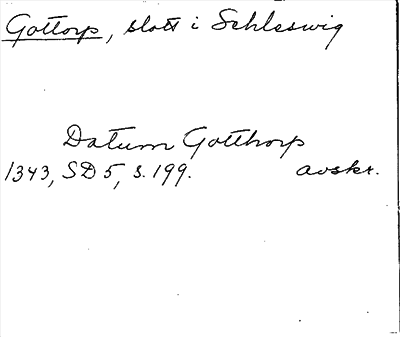 Gottorp, slott i Schleswig
Datum Gotthorp
1343, SD 5, s. 199. avskr.